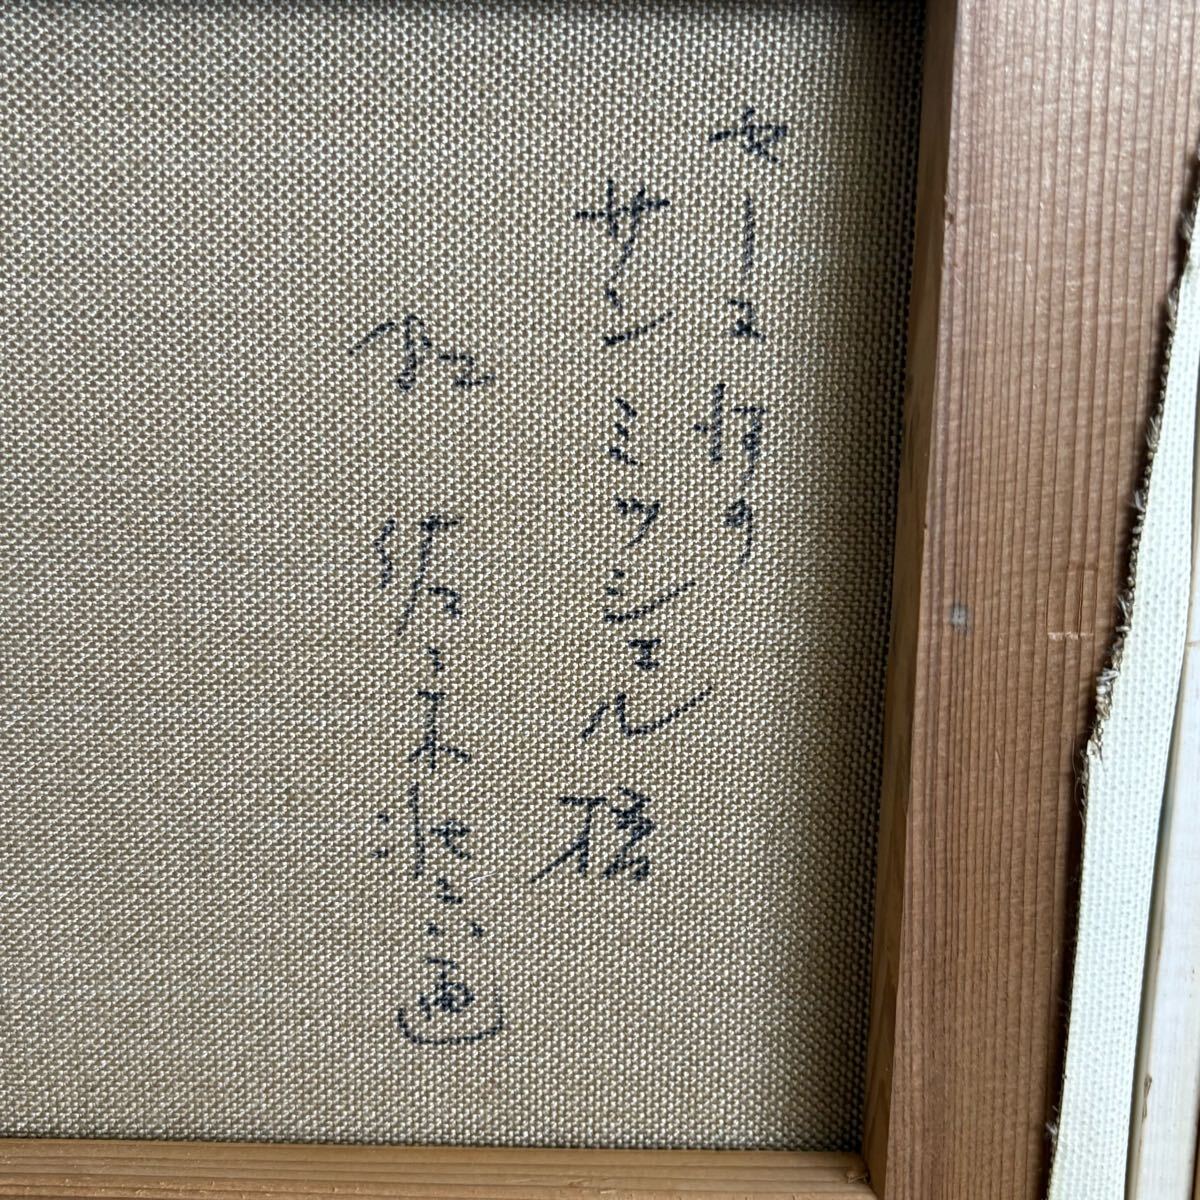 セーヌ河の
サンミッシェル橋
佐々木 画